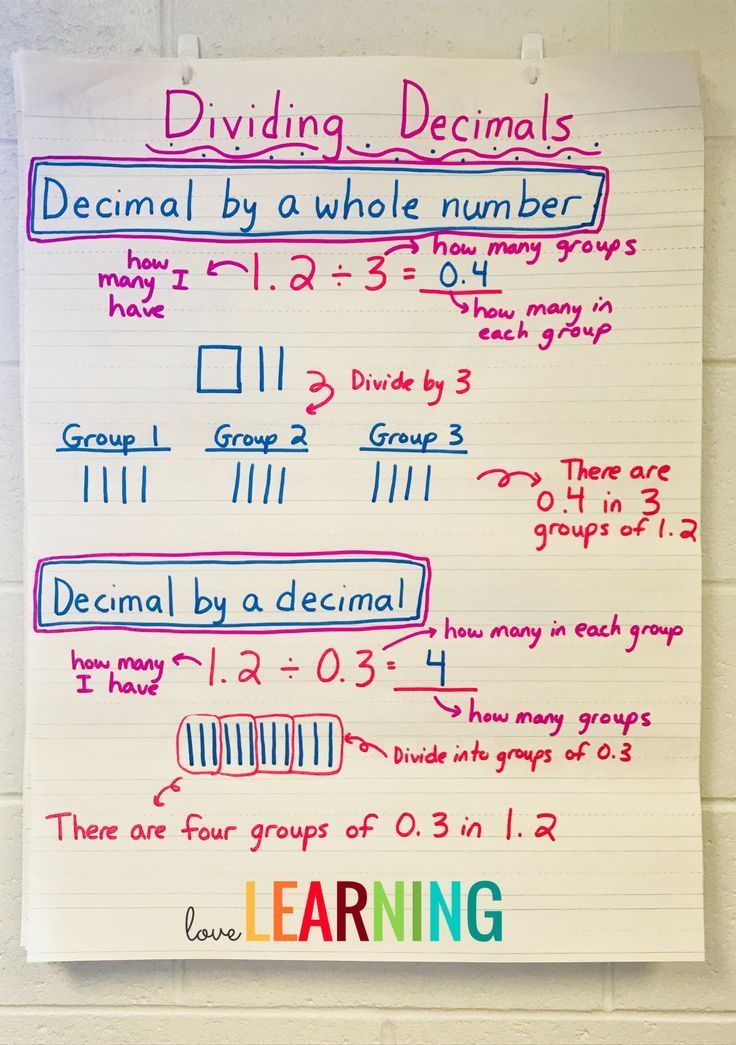 Dividing Decimals
Decimal by a whole number
how many I have
1.2 ÷ 3 = 0.4
how many groups
how many in each group
Divide by 3
Group 1 Group 2 Group 3
There are
0.4 in 3
groups of 1.2
Decimal by a decimal
how many in each group
how many I have
1.2 ÷ 0.3 = 4
how many groups
Divide into groups of 0.3
There are four groups of 0.3 in 1.2
love LEARNING